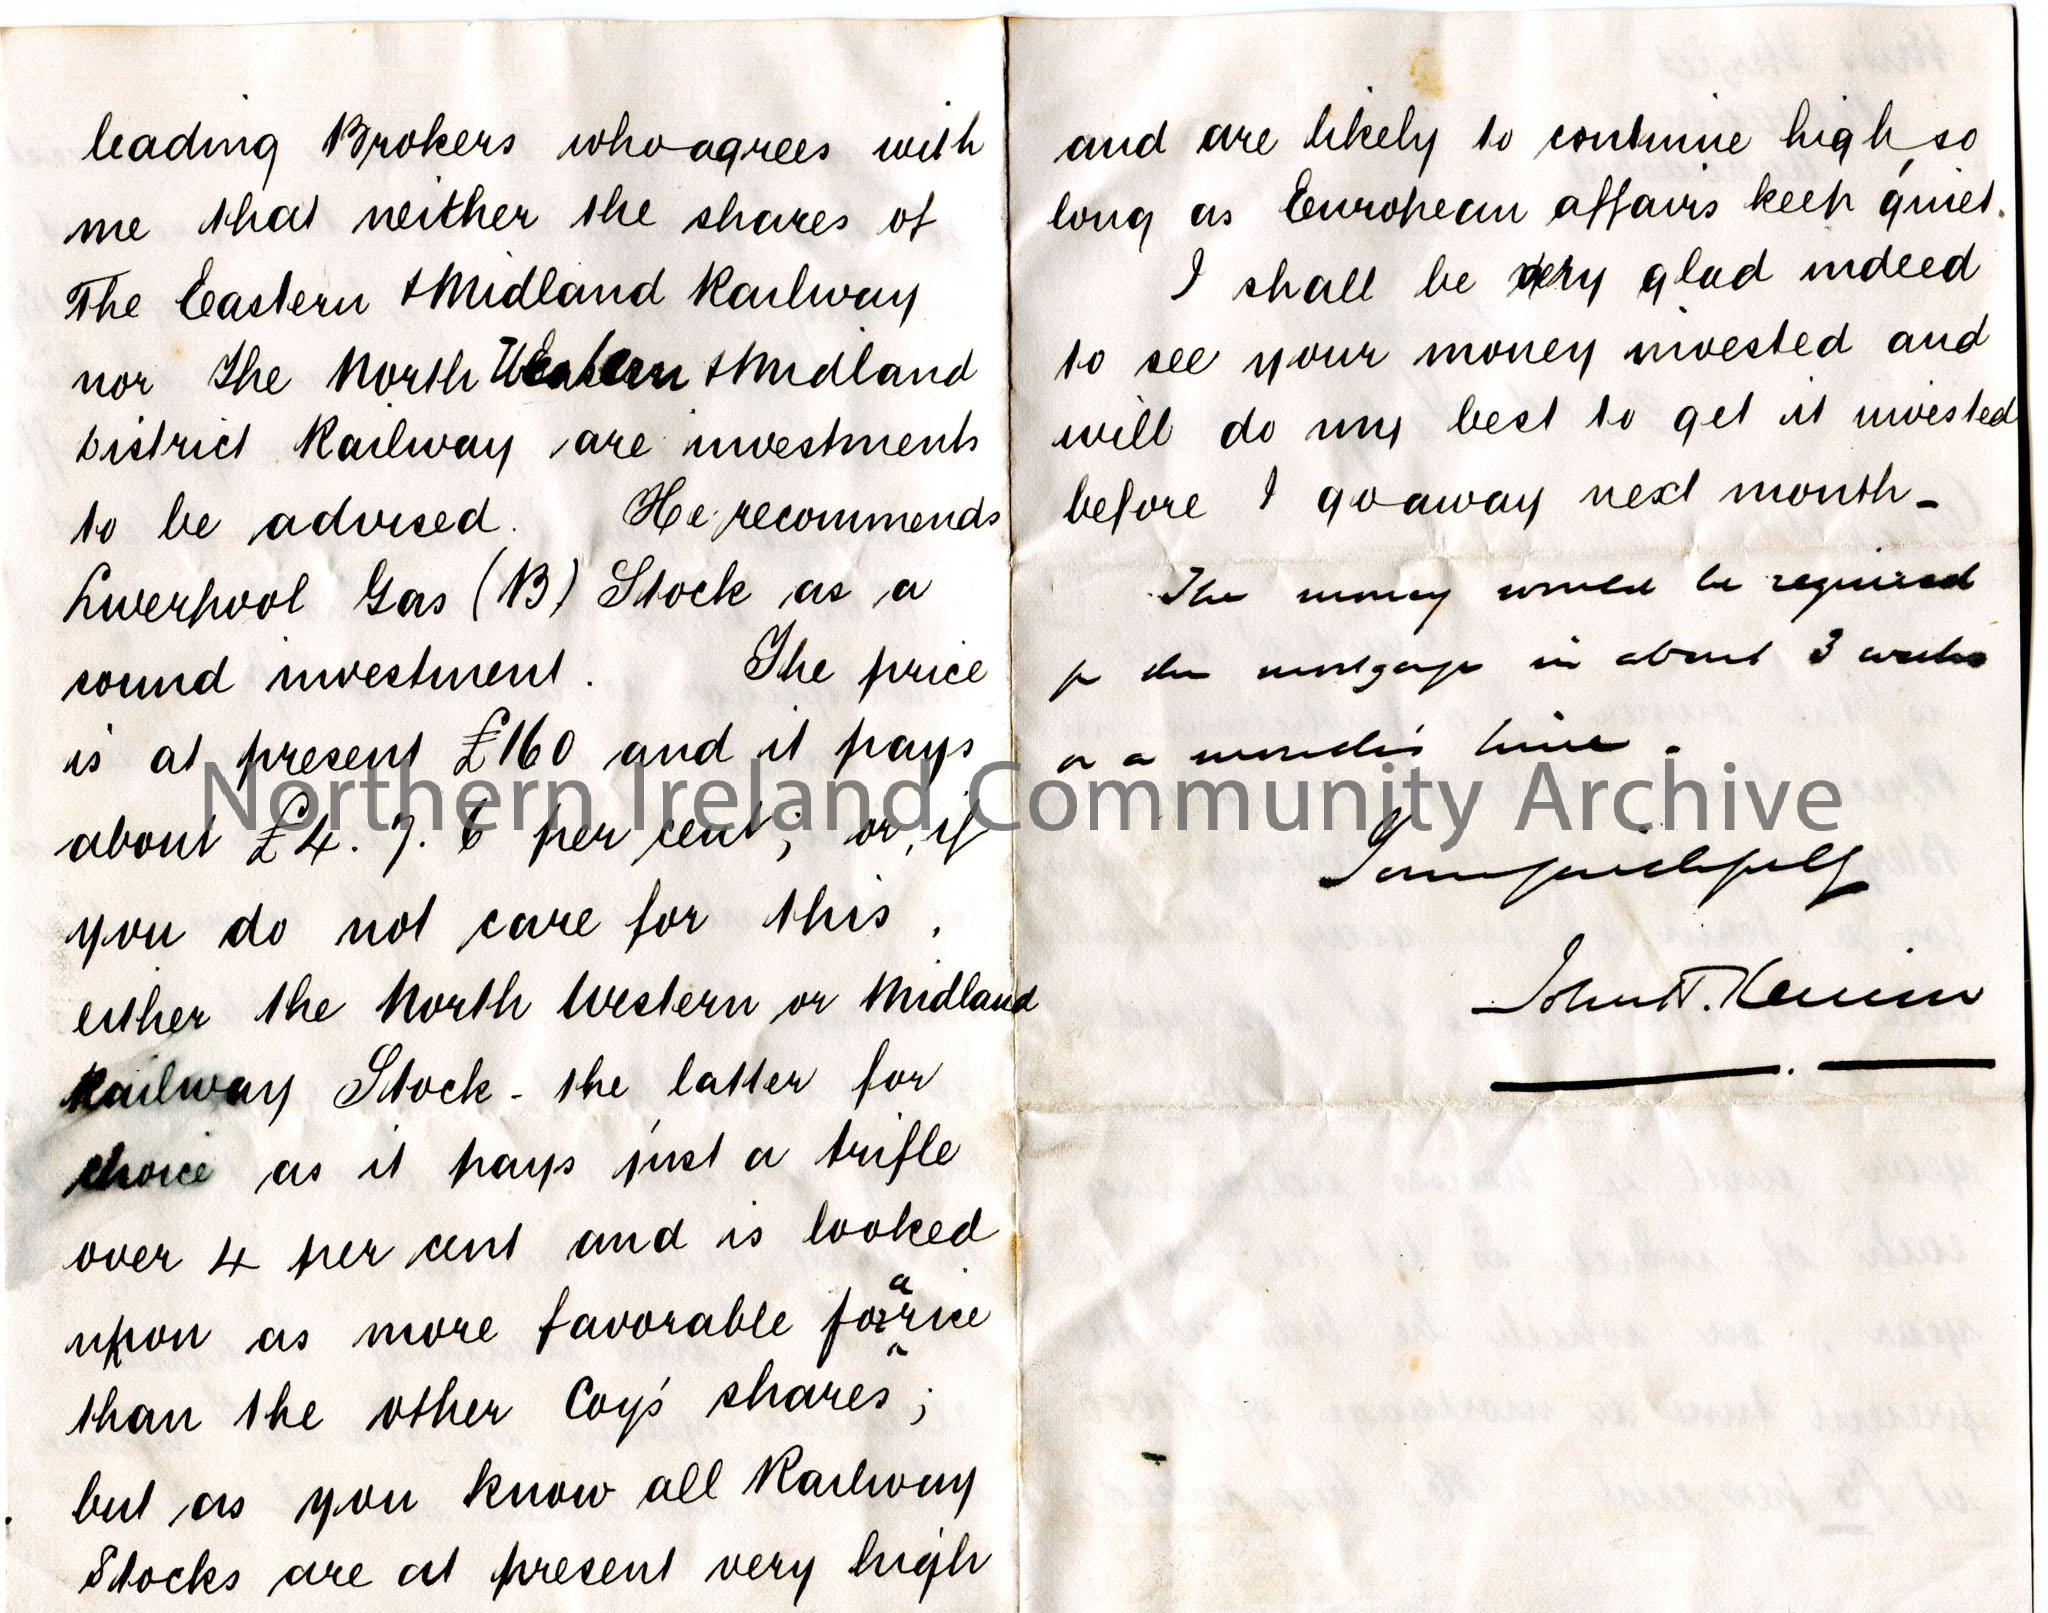 leading Brokers who agrees with
me that neither the shares of
The Eastern & Midland Railway
nor the North Western & Midland
District Railway are investments
to be advised. He recommends
Liverpool Gas (B) Stock as a
sound investment. The price
is at present £160 and it pays
about £4. 7. 6 per cent; or, if
you do not care for this,
either the North Western or Midland
Railway Stock - the latter for
choice as it pays just a trifle
over 4 per cent and is looked
upon as more favorable for a rise
than the other Coy's shares;
but as you know all Railway
Stocks are at present very high
and are likely to continue high, so
long as European affairs keep quiet.
I shall be very glad indeed
to see your money invested and
will do my best to get it invested
before I go away next month -
The money would be required
for the mortgage in about 3 weeks
or a month's time.
Yours faithfully
John T.
Northern Ireland Community Archive